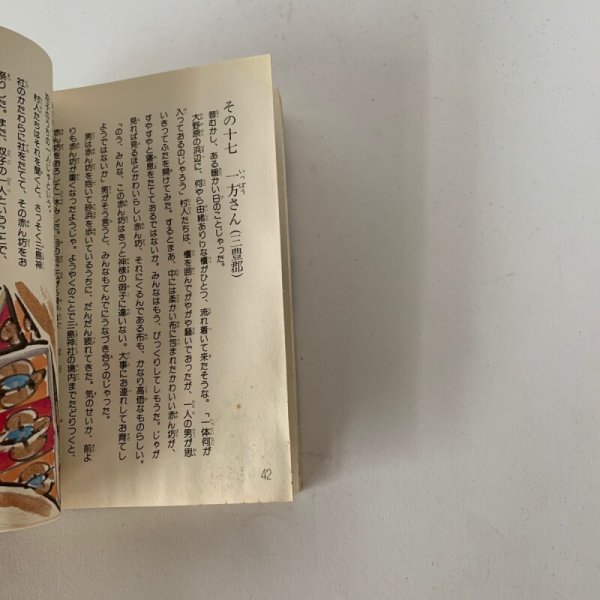 その十七　一方さん（三豊郡）
いっぽう
昔むかし、ある暖かい日のことじゃった。
大野原の浜辺に、何やら由緒ありげな櫃がひとつ、流れ着いて来たそうな。「一体何が
入っておるのじゃろう」村人たちは、櫃を囲んでがやがや騒いでおったが、一人の男が思
いきってふたを開けてみた。するとまあ、中には柔かい布に包まれたかわいい赤ん坊が、
すやすやと寝息をたてておるではないか。みんなはもう、びっくりしてしもうた。じゃが
見れば見るほどかわいらしい赤ん坊、それにくるんである布も、かなり高価なものらしい。
「のう、みんな、この赤ん坊はきっと神様の御子に違いない。大事にお連れしてお育てし
ようではないか」男がそう言うと、みんなもてんでにうなづき合うのじゃった。
男は赤ん坊を抱いて砂浜を歩いているうちに、だんだん疲れてきた。気のせいか、前よ
りも赤ん坊が重くなったようじゃ。ようやくのことで三島神社の境内までたどりつくと、
赤ん坊をおろして一休みした。
42
村人たちはそれを聞くと、さっそく三島神
社のかたわらに社をたてて、その赤ん坊をお
祭りした。また、双子の一人ということで、